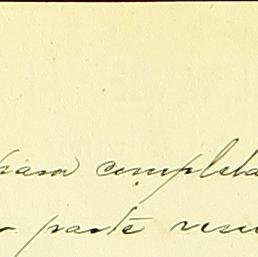 para completa
parte resu